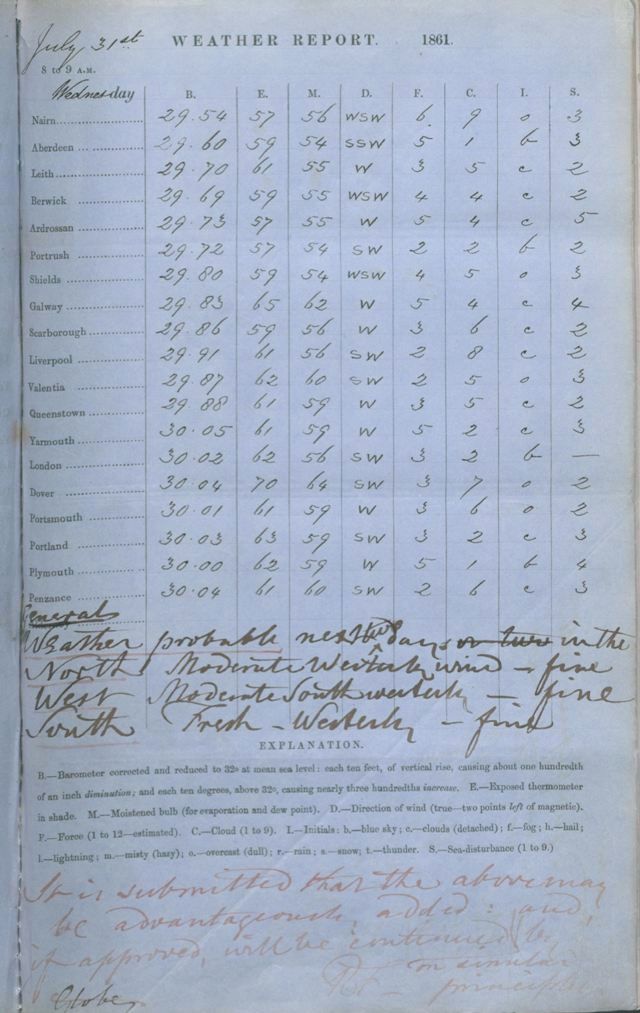 July 31st WEATHER REPORT. 1861.
8 to 9 A.M.
Wednesday B. E. M. D. F. C. I. S.
Nairn 29.54 57 56 WSW 6 9 o 3
Aberdeen 29.60 59 54 SSW 5 1 b 3
Leith 29.70 61 55 W 3 5 c 2
Berwick 29.69 59 55 WSW 4 4 c 2
Ardrossan 29.73 57 55 W 5 4 c 5
Portrush 29.72 57 54 SW 2 2 b 2
Shields 29.80 59 54 WSW 4 5 o 3
Galway 29.83 65 62 W 5 4 c 4
Scarborough 29.86 59 56 W 3 6 c 2
Liverpool 29.91 61 56 SW 2 8 c 2
Valentia 29.87 62 60 SW 2 5 o 3
Queenstown 29.88 61 59 W 3 5 c 2
Yarmouth 30.05 61 59 W 5 2 c 3
London 30.02 62 56 SW 3 2 b —
Dover 30.04 70 64 SW 3 7 o 2
Portsmouth 30.01 61 59 W 3 6 o 2
Portland 30.03 63 59 SW 3 2 c 3
Plymouth 30.00 62 59 W 5 1 b 4
Penzance 30.04 61 60 SW 2 6 c 3
General
Weather probable next two days or two in the
North Moderate Westerly wind – fine
West Moderate South westerly – fine
South Fresh – Westerly – fine
EXPLANATION.
B.—Barometer corrected and reduced to 32o at mean sea level: each ten feet, of vertical rise, causing about one hundredth
of an inch diminution; and each ten degrees, above 32o, causing nearly three hundredths increase. E.—Exposed thermometer
in shade. M.—Moistened bulb (for evaporation and dew point). D.—Direction of wind (true—two points left of magnetic).
F.—Force (1 to 12—estimated). C.—Cloud (1 to 9). I.—Initials: b.—blue sky; c.—clouds (detached); f.—fog; h.—hail;
l.—lightning; m.—misty (hazy); o.—overcast (dull); r.—rain; s.—snow; t.—thunder. S.—Sea-disturbance (1 to 9.)
It is submitted that the above may
be advantageously added: and,
if approved, will be continued by
on similar
principle
Globe